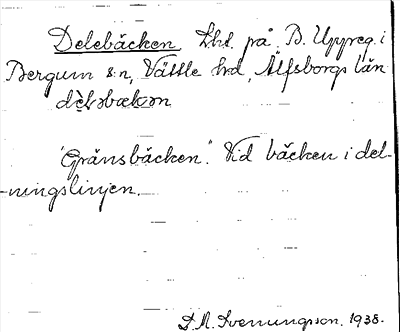 Delebäcken, Lht. på B. Uppreg. i
Bergum s:n, Vättle hd, Älfsborgs län
dèləbækən
"Gränsbäcken." Vid bäcken i del-
-ningslinjen.
S. M. Svenungson. 1938.